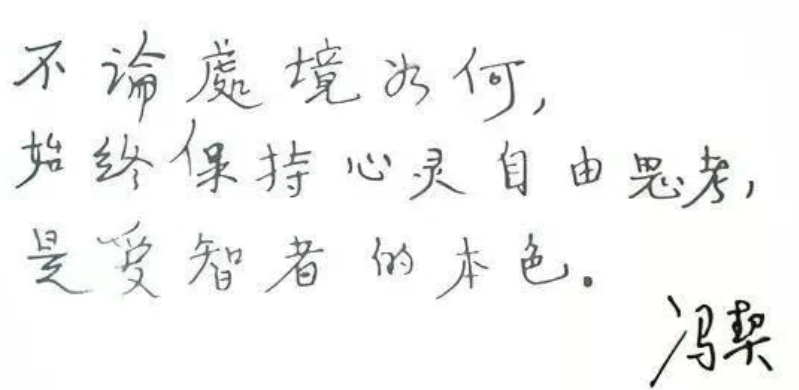 不論處境如何,
始终保持心灵自由思考,
是爱智者的本色。
冯契